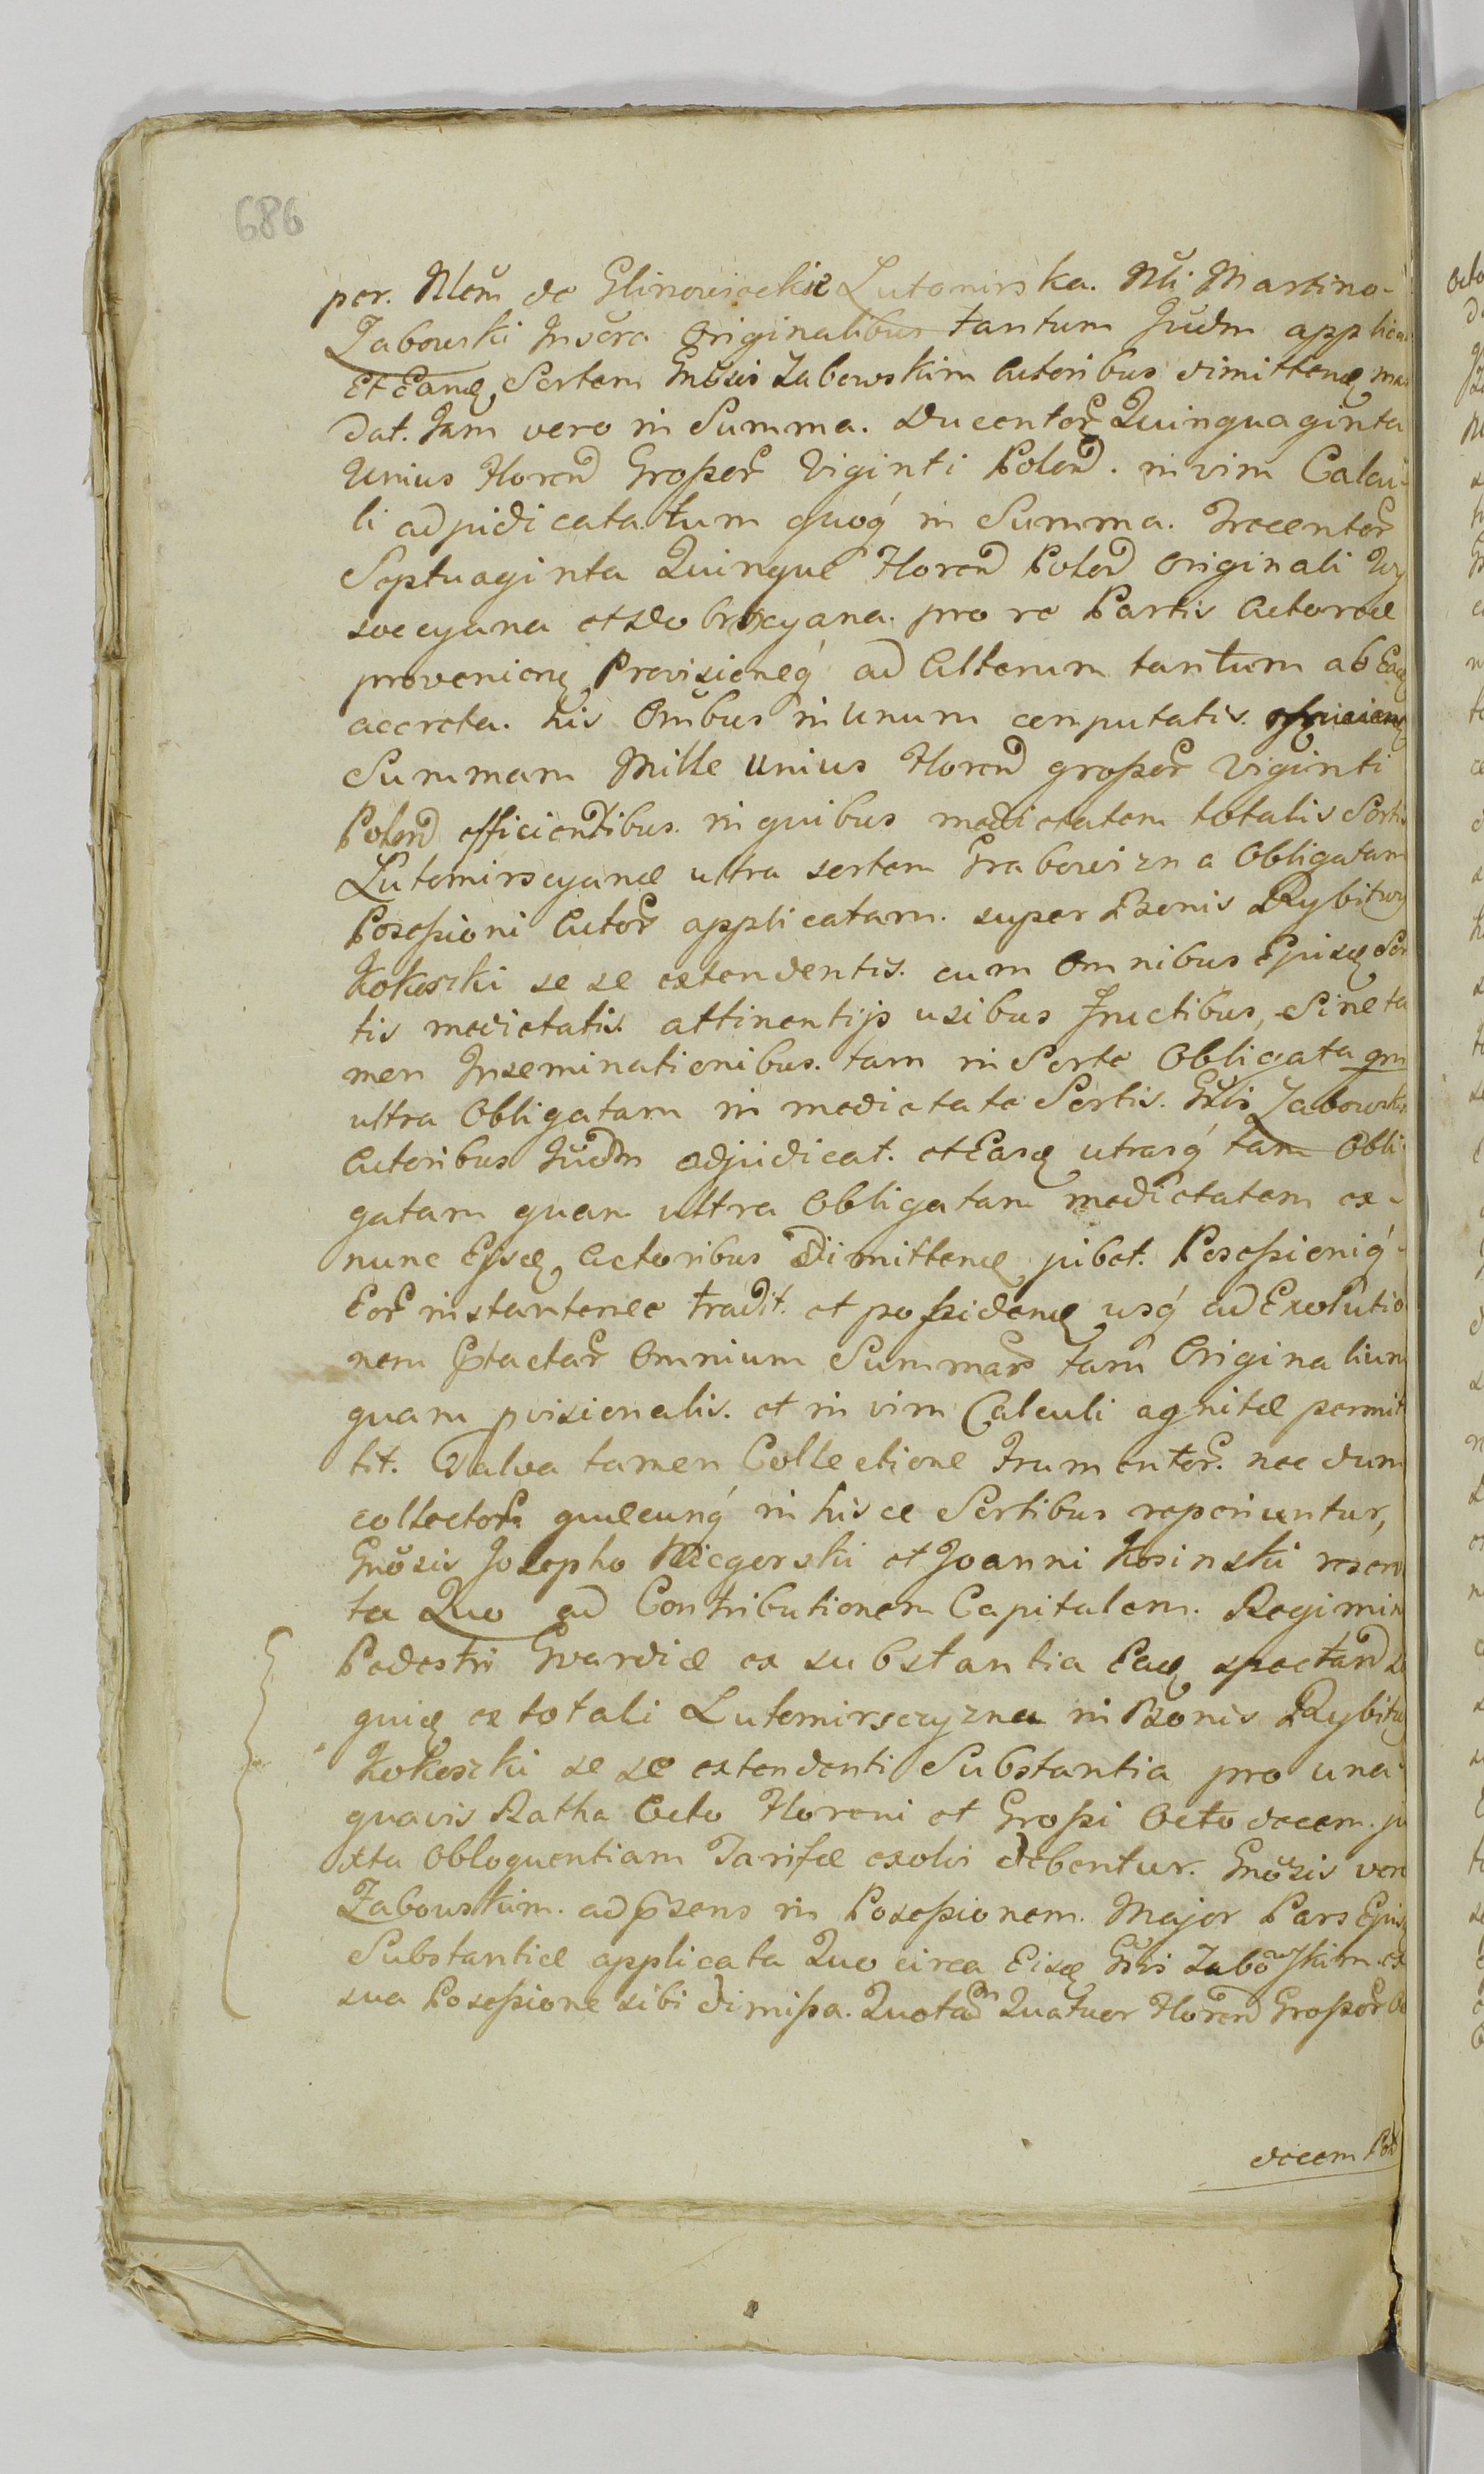 686
per. Nlem de Glinowieckie Lutomirska. Nli Martino-
Zabowski Inscra Originalibus tantum Judm applica
Et Eanq Sortem Gnosis Zabowskim Actoribus dimittenq man
dat. Jam vero in Summa. Ducentor Quinquaginta
Unius Floren Grossor Viginti Polon. in vim Calcu-
li adjudicata tum quoq in Summa. Trecentor
Septuaginta Quinque Floren Polon Originali Wy
socyana et Dobrocyana. pro re Partis Actoreæ
provenienq Provisioneq ad Alterum tantum ab Eaq
accreta. his Omibus in unum computatis.
Summam Mille Unius Floren grossor Viginti
Polon efficientibus. in quibus medietatem totalis Sortis
Lutomirscyanæ ultra sortem Grabowizna Obligatam
Possessioni Actor applicatam. super Bonis Rybitwy
Kokoszki se se extendentis. cum Omnibus Ejusq Sor
tis medietatis attinentijs usibus Fructibus, Sine ta
men Inseminationibus. tam in Sorte Obligata qm
ultra Obligatam in medietate Sortis. Gsis Zabowski
Actoribus Judm adjudicat. et Easq utrasq tam Obli-
gatam quam ultra Obligatam medietatem ex-
nunc Ejsq Actoribus Dimittenq jubet. Possessioniq-
Eor instantenee tradit. et possidenq usq ad Exolutio
nem Sptactar Omnium Summar tam Originalium
quam pvisionalis. et in vim Calculi agnitæ permit
tit. Salva tamen Collectione Frumentor. nec dum
collector. quæcunq in hisce Sortibus reperiuntur,
Gnosis Josepho Niegorski et Joanni Kosinski reserv
ta Quo ad Contributionem Capitalem. Regimin
Pedestri Gvardiæ ex substantia Eaq spectan
quiq ex totali Lutomirsczyzna in Bonis Rybitw
Kokoszki se se extendenti Substantia pro una
quavis Ratha Octo Floreni et Grossi Octodecem. ju
xta Obloquentiam Tarifæ exolvi debentur. Gnosis vero
Zabowskim. ad psens in Possessionem. Major Pars Ejusq
Substantiæ applicata Quo circa Eisq Gsis Zabowskim ex
sua Possessione sibi dimissa. Quotan Quatuor Floren Grossor Oc
decem Pol